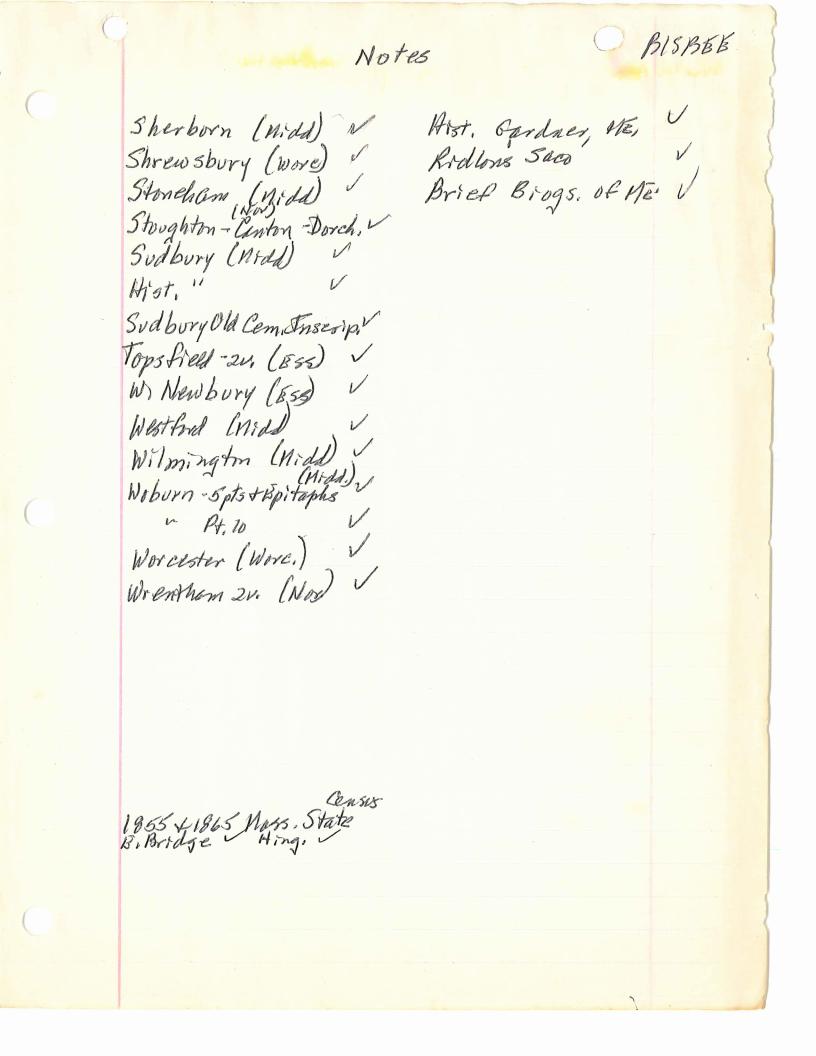 Notes
BISBEE
Sherborn (Midd) ✓
Shrewsbury (Worc) ✓
Stoneham (Midd) ✓
(Nor)
Stoughton - Canton - Dorch. ✓
Sudbury (Midd) ✓
Hist. " ✓
Sudbury Old Cem. Inscrip. ✓
Topsfield - 2v. (Ess) ✓
W. Newbury (Ess) ✓
Westford (Midd) ✓
Wilmington (Midd) ✓
(Midd.)
Woburn - 5 pts + Epitaphs ✓
" Pt. 10 ✓
Worcester (Worc.) ✓
Wrentham 2v. (Nor) ✓
Hist. Gardner, Me. ✓
Ridlons Saco ✓
Brief Biogs. of Me. ✓
Census
1855 + 1865 Mass. State
B. Bridge ✓ Hing. ✓